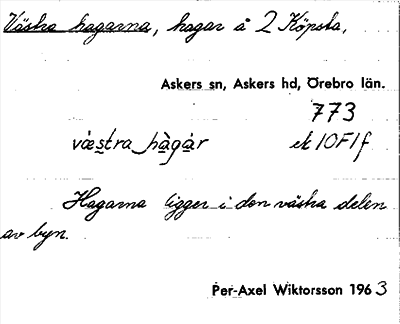 Västra hagarna, hagar å 2 Köpsta,
Askers sn, Askers hd, Örebro län.
773
væstra hàgàr ek 10F1f
Hagarna ligger i den västra delen
av byn.
Per-Axel Wiktorsson 1963